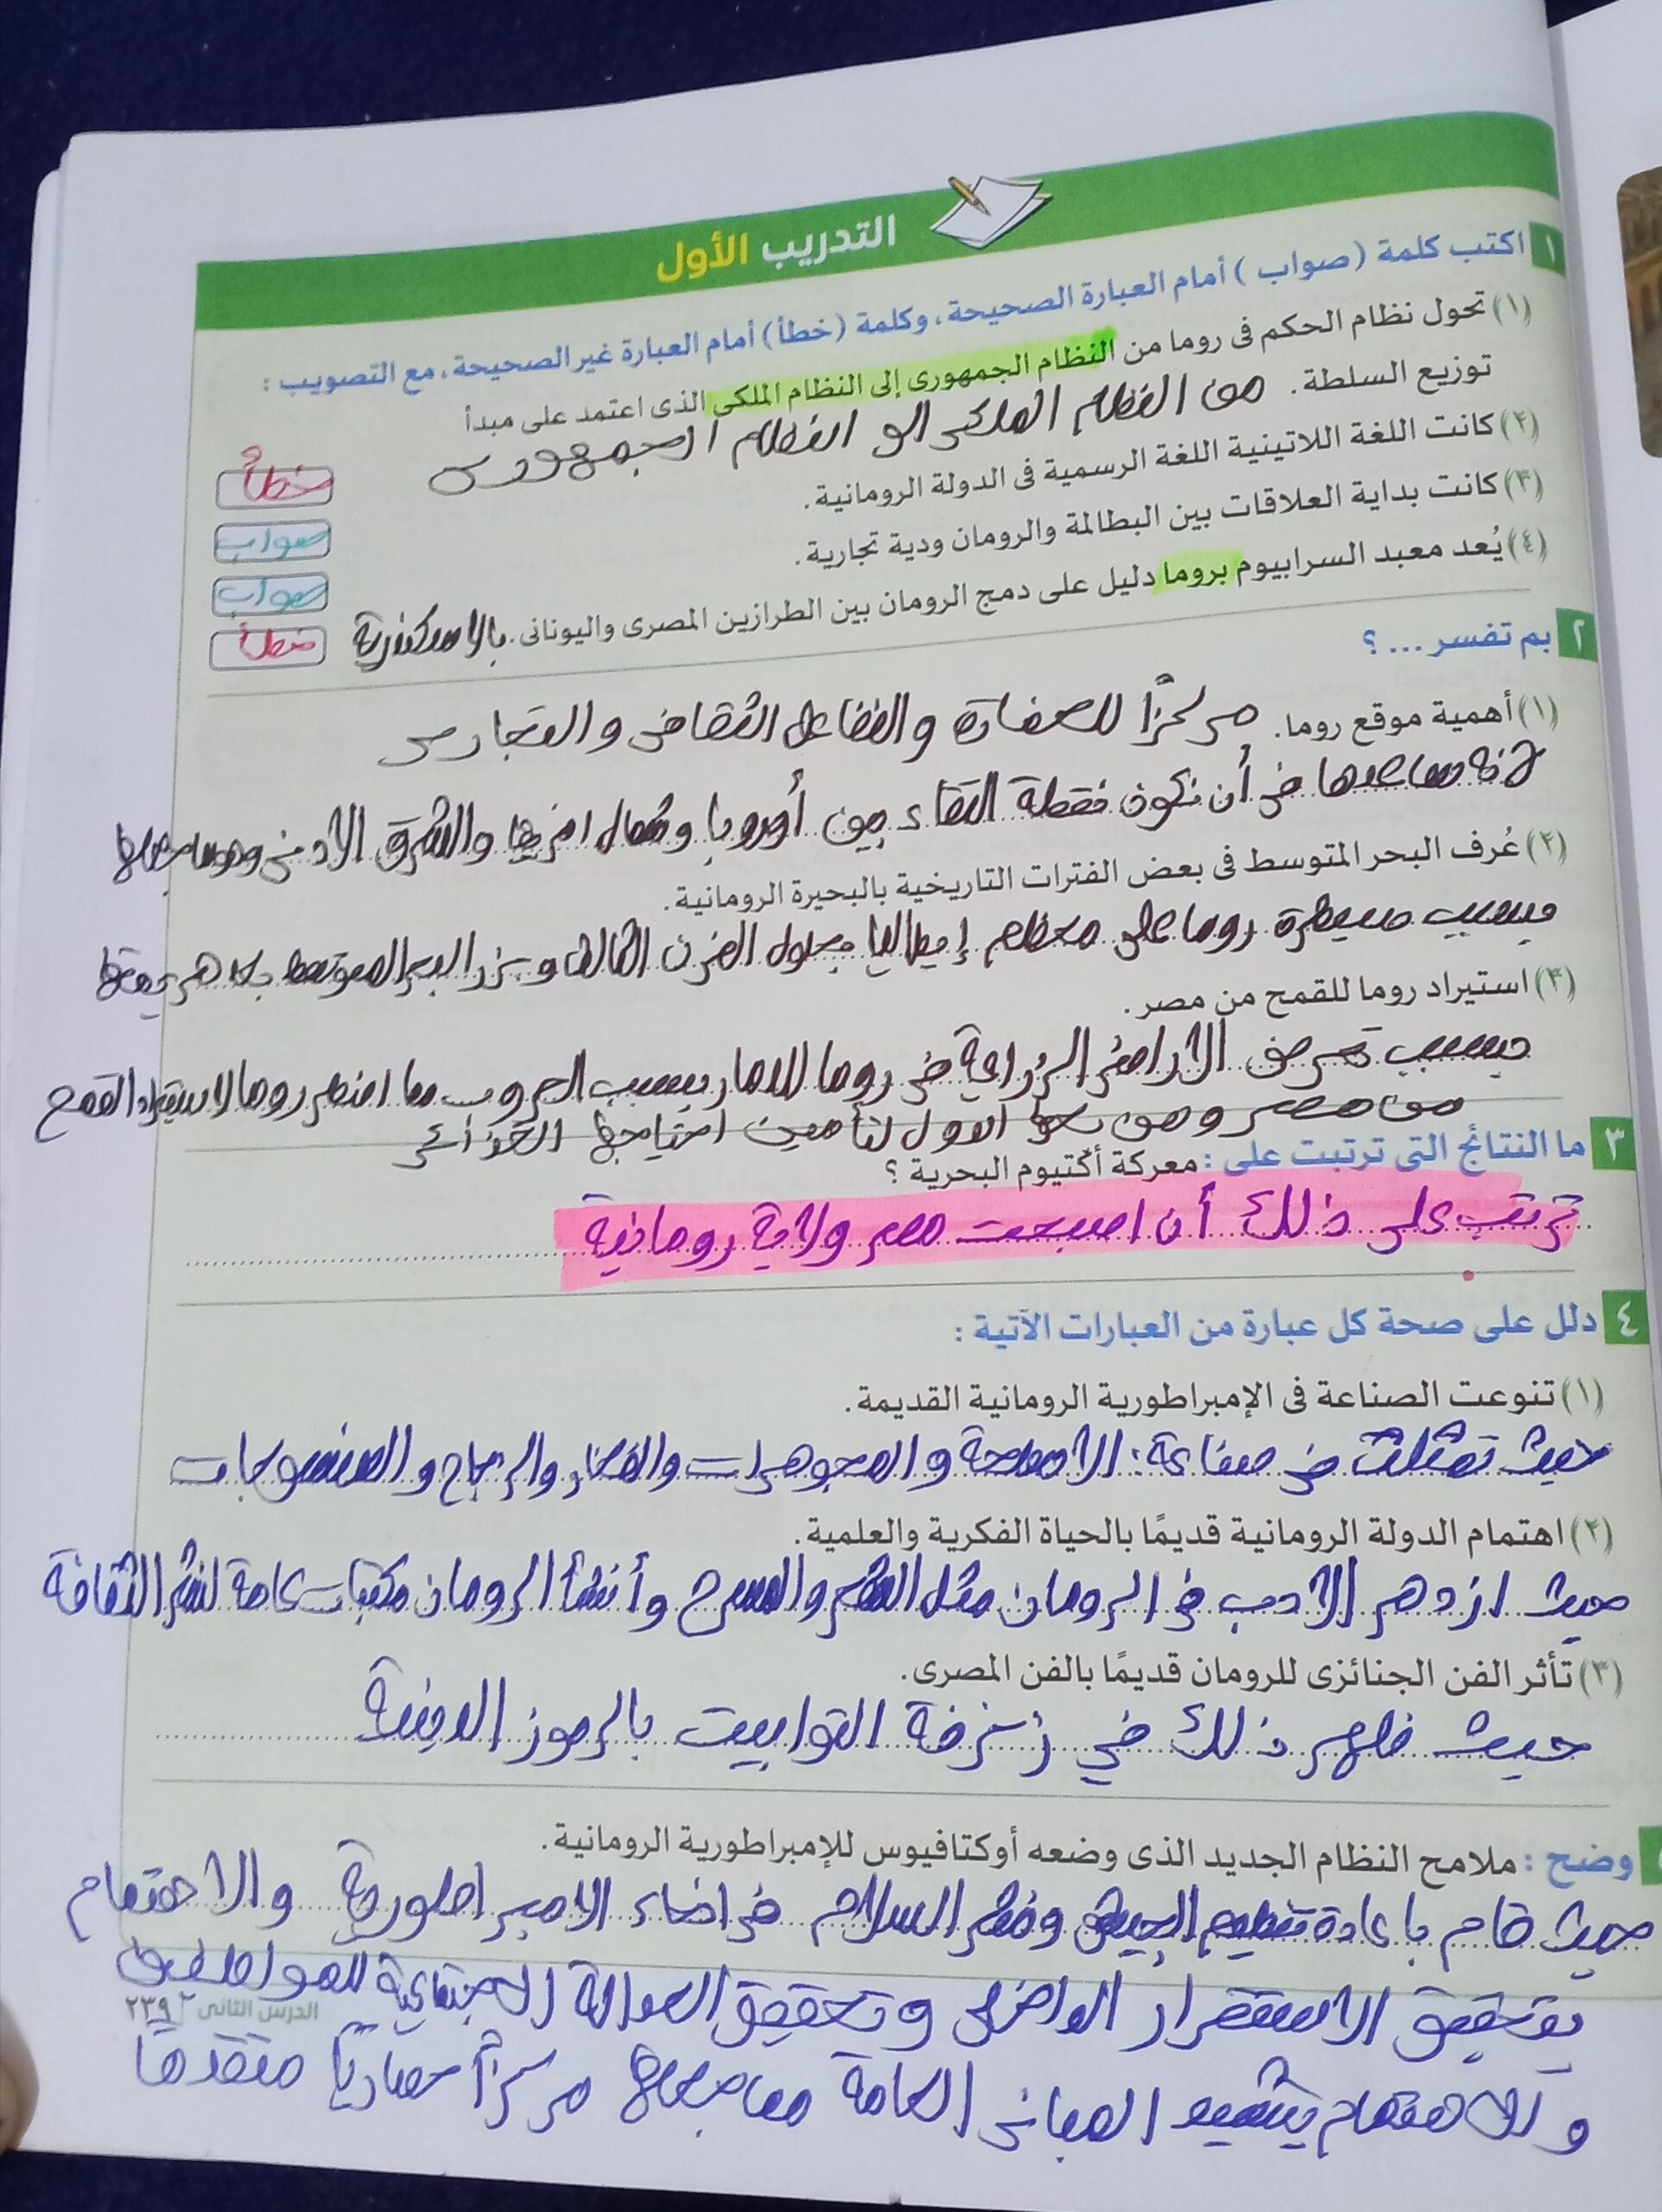 التدريب الأول
١ اكتب كلمة (صواب) أمام العبارة الصحيحة، وكلمة (خطأ) أمام العبارة غير الصحيحة، مع التصويب :
(١) تحول نظام الحكم فى روما من النظام الجمهورى إلى النظام الملكى الذى اعتمد على مبدأ
توزيع السلطة. من النظام الملكى الى النظام الجمهورى
خطأ
(٢) كانت اللغة اللاتينية اللغة الرسمية فى الدولة الرومانية.
صواب
(٣) كانت بداية العلاقات بين البطالمة والرومان ودية تجارية.
صواب
(٤) يُعد معبد السرابيوم بروما دليل على دمج الرومان بين الطرازين المصرى واليونانى. بالاسكندرية
خطأ
٢ بم تفسر ... ؟
(١) أهمية موقع روما. مركزًا للحضارة والتفاعل الثقافى والتجارى
لانه ساعدها فى أن تكون نقطة التقاء بين أوروبا وشمال افريقيا والشرق الادنى وهو ما جعلها
(٢) عُرف البحر المتوسط فى بعض الفترات التاريخية بالبحيرة الرومانية.
بسبب سيطرة روما على معظم إيطاليا بحلول القرن الثالث و البحر المتوسط
(٣) استيراد روما للقمح من مصر.
بسبب تعرض الاراضى الزراعية فى روما للدمار بسبب الحروب مما اضطر روما لاستيراد القمح
من مصر ومن الدول لتأمين احتياجها الغذائى
٣ ما النتائج التى ترتبت على : معركة أكتيوم البحرية ؟
ترتب على ذلك أن اصبحت مصر ولاية رومانية
٤ دلل على صحة كل عبارة من العبارات الآتية :
(١) تنوعت الصناعة فى الإمبراطورية الرومانية القديمة.
حيث تمثلت فى صناعة: الاسلحة والمجوهرات والفخار والزجاج والمنسوجات
(٢) اهتمام الدولة الرومانية قديمًا بالحياة الفكرية والعلمية.
حيث ازدهر الادب فى الرومان مثل الشعر والمسرح وأنشأ الرومان مكتبات عامة لنشر الثقافة
(٣) تأثر الفن الجنائزى للرومان قديمًا بالفن المصرى.
حيث ظهر ذلك في زخرفة التوابيت بالرموز الدينية
وضح : ملامح النظام الجديد الذى وضعه أوكتافيوس للإمبراطورية الرومانية.
حيث قام باعادة تنظيم الجيش ونشر السلام فى انحاء الامبراطورية والاهتمام
بتحقيق الاستقرار الداخلى وتحقيق العدالة الاجتماعية للمواطنين
والاهتمام بتشييد المبانى العامة مما جعلها مركزًا حضاريًا متقدمًا
الدرس الثانى ٢٣٩